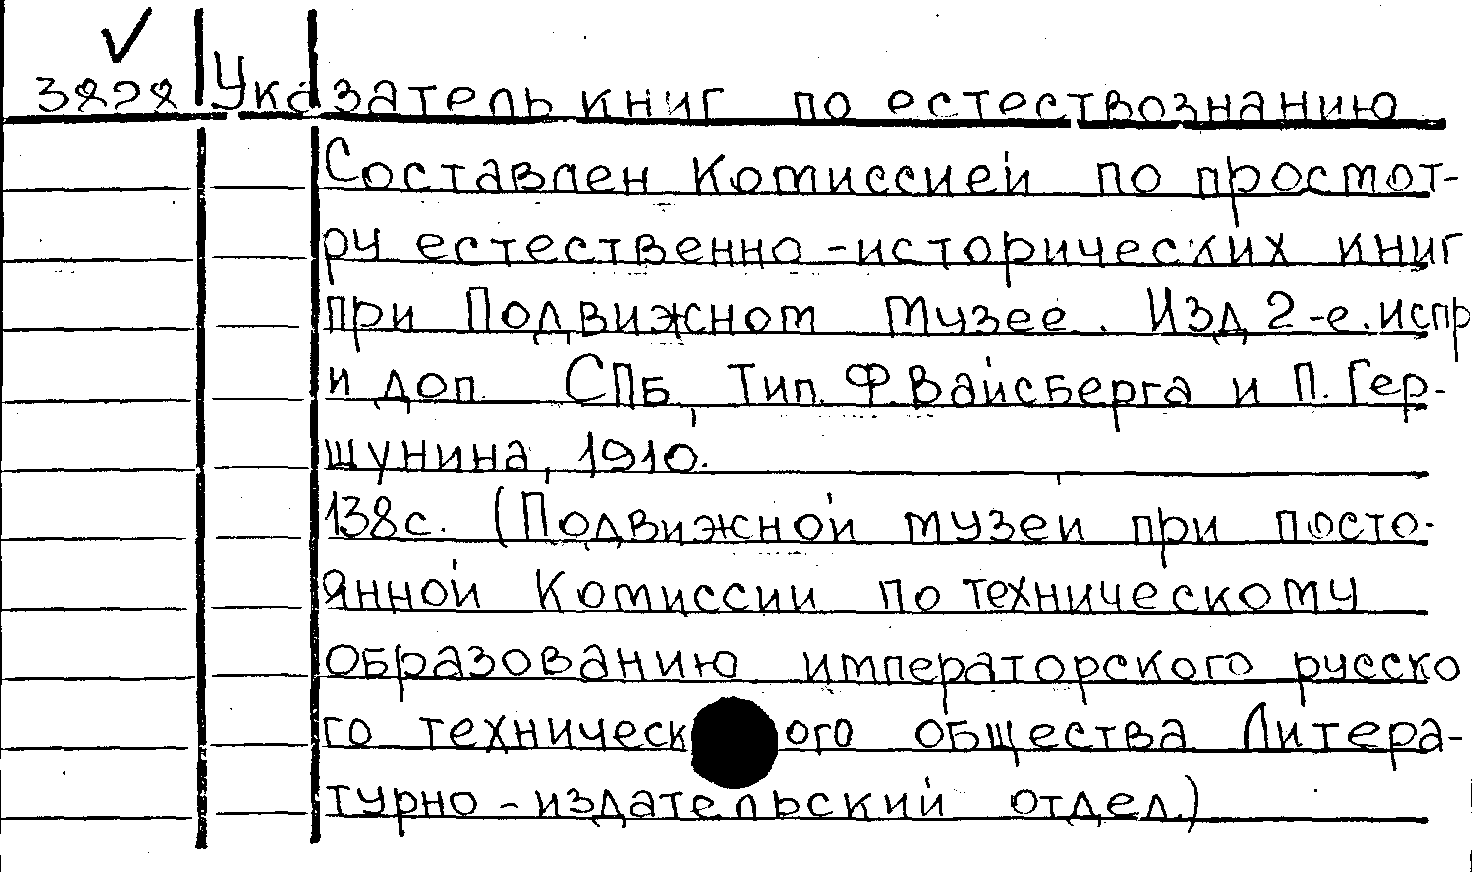 ✓
3828 Указатель книг по естествознанию
Составлен Комиссией по простот-
ру естественно-исторических книг
при Подвижном Музее. Изд 2-е. испр
и доп СПБ, Тип. Ф. Вайсберга и П. Гер-
шунина, 1910.
138с. (Подвижной музей при посто-
янной Комиссии по техническому
образованию императорского русско
го техническ ого общества Литера-
турно-издательский отдел.)